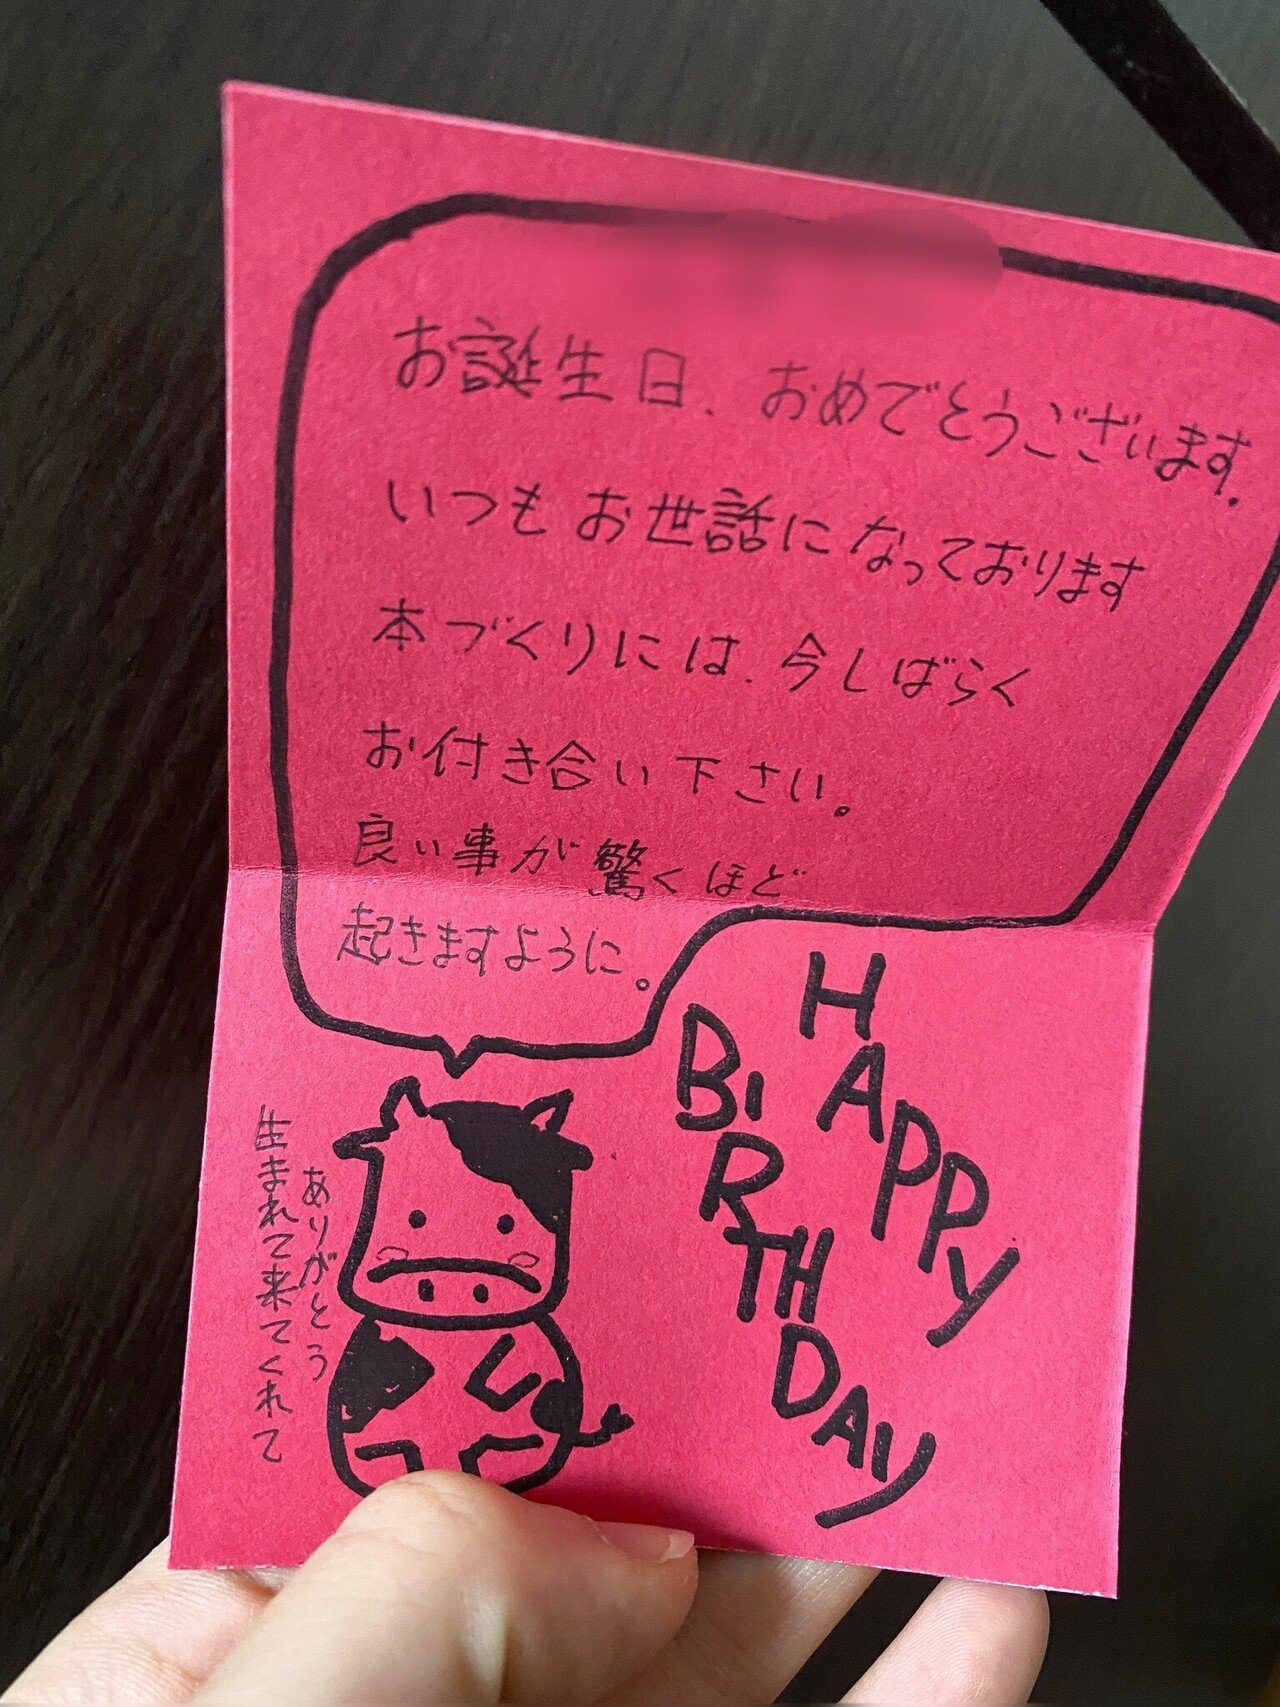 お誕生日、おめでとうございます。
いつもお世話になっております
本づくりには、今しばらく
お付き合い下さい。
良い事が驚くほど
起きますように。
HAPPY
BIRTHDAY
ありがとう
生まれて来てくれて